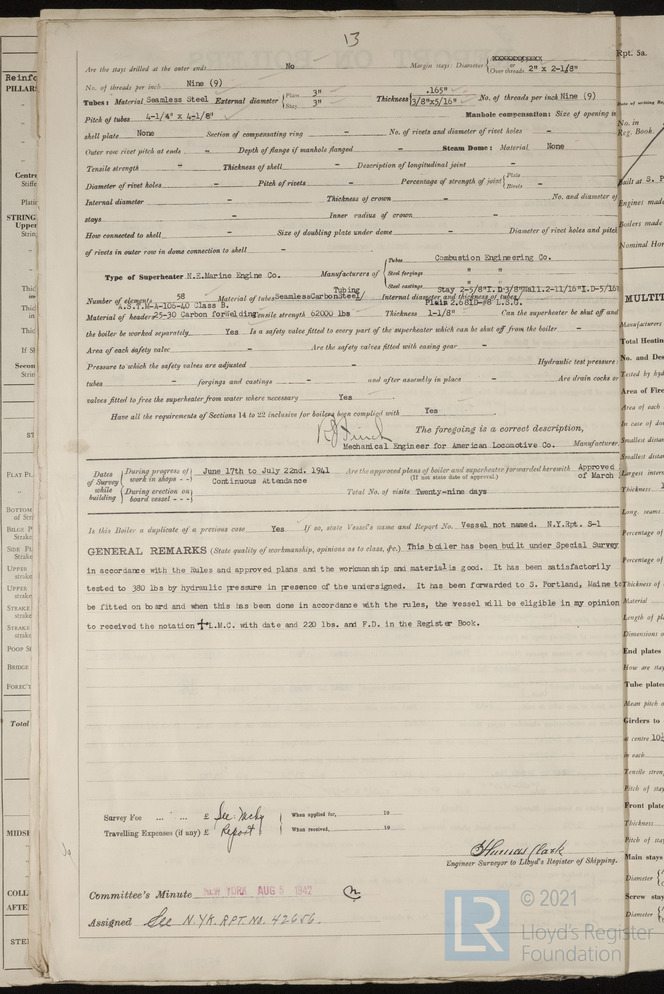 13
Are the stays drilled at the outer ends No Margin stays: Diameter { or Over threads 2" x 2-1/8"
No. of threads per inch Nine (9)
Tubes: Material Seamless Steel External diameter { Plain 3" Stay 3" Thickness { .165" 3/8"x5/16" No. of threads per inch Nine (9)
Pitch of tubes 4-1/4" x 4-1/8" Manhole compensation: Size of opening in
shell plate None Section of compensating ring - No. of rivets and diameter of rivet holes -
Outer row rivet pitch at ends - Depth of flange if manhole flanged - Steam Dome: Material None
Tensile strength - Thickness of shell - Description of longitudinal joint -
Diameter of rivet holes - Pitch of rivets - Percentage of strength of joint { Plate Rivets -
Internal diameter - Thickness of crown - No. and diameter of
stays - Inner radius of crown -
How connected to shell - Size of doubling plate under dome - Diameter of rivet holes and pitch
of rivets in outer row in dome connection to shell -
Type of Superheater N.E.Marine Engine Co. Manufacturers of { Tubes Combustion Engineering Co.
Steel forgings " "
Steel castings " "
Number of elements 58 Material of tubes Seamless Carbon Steel Tubing Internal diameter and thickness of tubes Stay 2-5/8"I.D-3/8"Wall.2-11/16"I.D-5/16
Plain 2.68ID-#8 L.S.G.
Material of headers A.S.T.M-A-106-40 Class B. 25-30 Carbon for Welding Tensile strength 62000 lbs Thickness 1-1/8" Can the superheater be shut off and
the boiler be worked separately Yes Is a safety valve fitted to every part of the superheater which can be shut off from the boiler -
Area of each safety valve - Are the safety valves fitted with easing gear -
Pressure to which the safety valves are adjusted - Hydraulic test pressure:
tubes - forgings and castings - and after assembly in place - Are drain cocks or
valves fitted to free the superheater from water where necessary Yes
Have all the requirements of Sections 14 to 22 inclusive for boilers been complied with Yes
The foregoing is a correct description,
Mechanical Engineer for American Locomotive Co. Manufacturer.
Dates of Survey while building { During progress of work in shops - - June 17th to July 22nd. 1941 Continuous Attendance
During erection on board vessel - - -
Are the approved plans of boiler and superheater forwarded herewith Approved of March
(If not state date of approval.)
Total No. of visits Twenty-nine days
Is this Boiler a duplicate of a previous case Yes If so, state Vessel's name and Report No. Vessel not named. N.Y.Rpt. S-1
GENERAL REMARKS (State quality of workmanship, opinions as to class, &c.) This boiler has been built under Special Survey
in accordance with the Rules and approved plans and the workmanship and material is good. It has been satisfactorily
tested to 380 lbs by hydraulic pressure in presence of the undersigned. It has been forwarded to S. Portland, Maine to
be fitted on board and when this has been done in accordance with the rules, the vessel will be eligible in my opinion
to received the notation +L.M.C. with date and 220 lbs. and F.D. in the Register Book.
Survey Fee ... ... £ See Mchy When applied for, 19
Travelling Expenses (if any) £ Report When received, 19
Thomas Clark
Engineer Surveyor to Lloyd's Register of Shipping.
Committee's Minute NEW YORK AUG 5 1942
Assigned See N.YK. RPT. NO. 42656.
LR © 2021
Lloyd's Register
Foundation